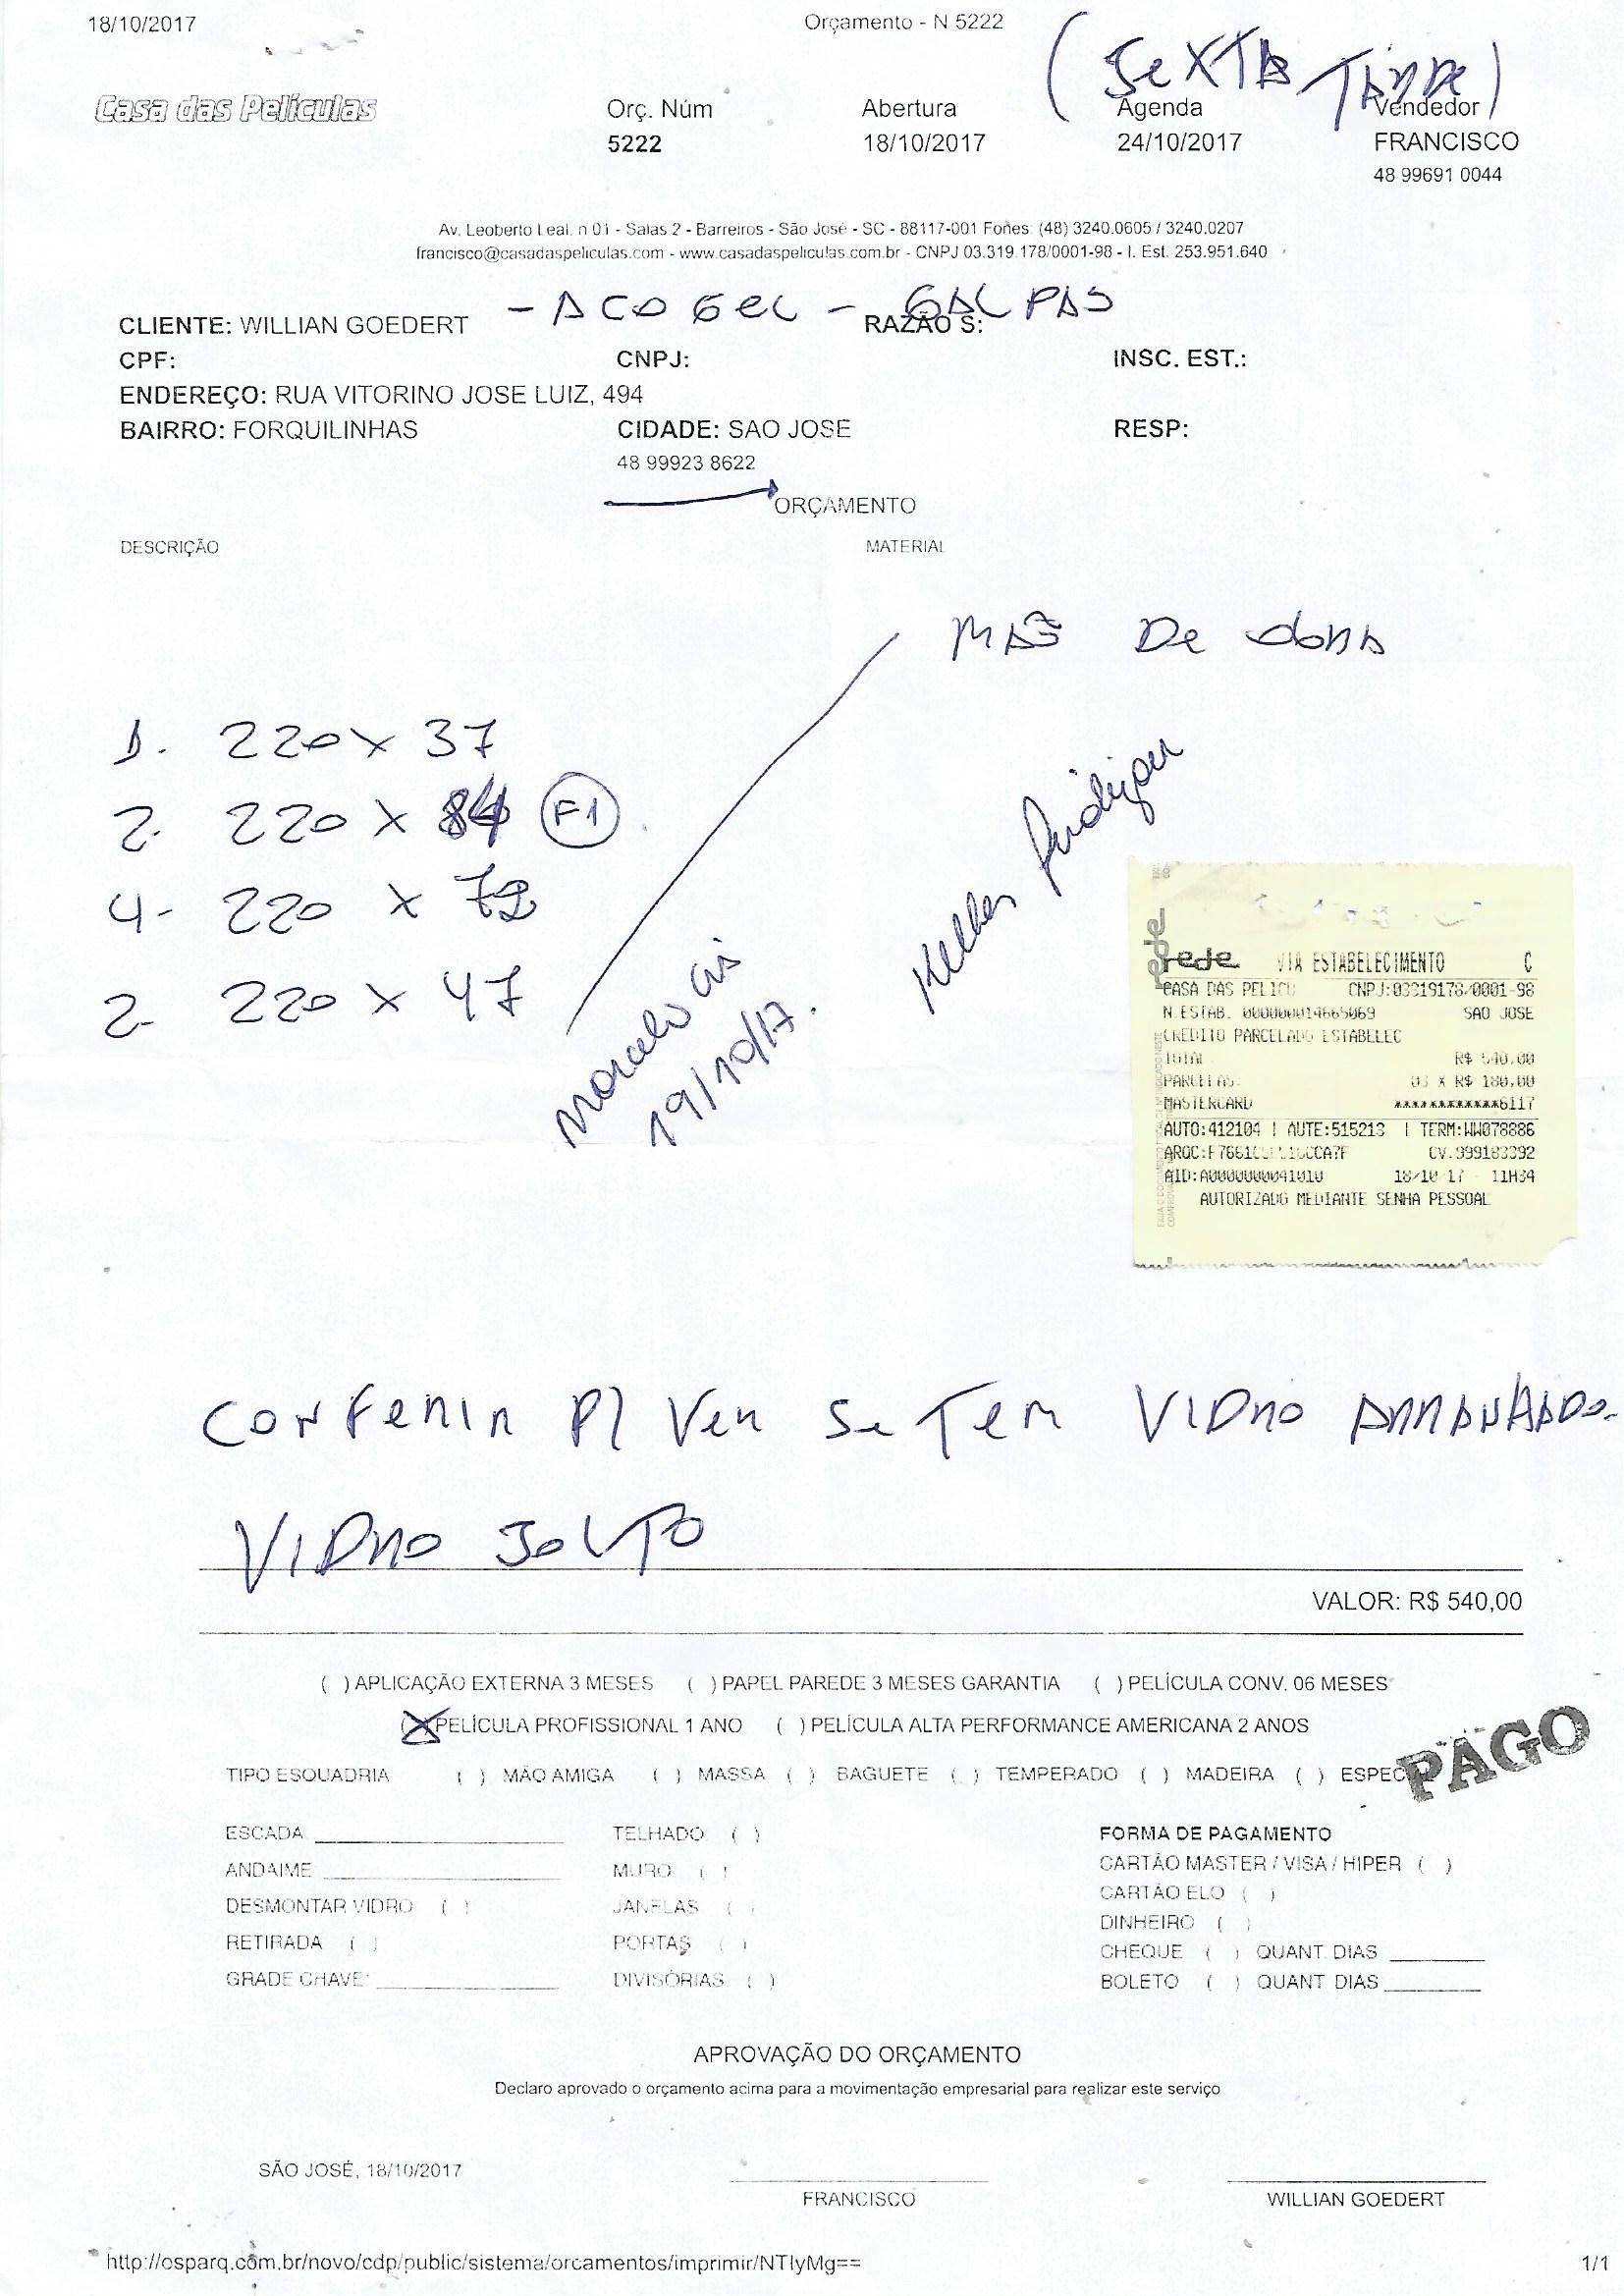 18/10/2017 Orçamento - N 5222
(SEXTA TARDE)
Casa das Películas Orç. Núm Abertura Agenda Vendedor
5222 18/10/2017 24/10/2017 FRANCISCO
48 99691 0044
Av. Leoberto Leal, n 01 - Salas 2 - Barreiros - São José - SC - 88117-001 Fones: (48) 3240.0605 / 3240.0207
francisco@casadaspeliculas.com - www.casadaspeliculas.com.br - CNPJ 03.319.178/0001-98 - I. Est. 253.951.640
- ACO GEL - GALPAS
CLIENTE: WILLIAN GOEDERT RAZÃO S:
CPF: CNPJ: INSC. EST.:
ENDEREÇO: RUA VITORINO JOSE LUIZ, 494
BAIRRO: FORQUILINHAS CIDADE: SAO JOSE RESP:
48 99923 8622
ORÇAMENTO
DESCRIÇÃO MATERIAL
MAO De obra
1. 220 x 37
2. 220 x 84 F1
4- 220 x 72
2- 220 x 47
Marcelo
19/10/17.
rede VIA ESTABELECIMENTO C
CASA DAS PELICU CNPJ:03319178/0001-98
N.ESTAB. 000000014665069 SAO JOSE
CREDITO PARCELADO ESTABELEC
TOTAL R$ 540,00
PARCELAS: 03 X R$ 180,00
MASTERCARD ************6117
AUTO:412104 | AUTE:515213 | TERM:WW078886
CV.999183392
AID:A0000000041010 18/10/17 - 11H34
AUTORIZADO MEDIANTE SENHA PESSOAL
CONFERIR P/ VER SE TEM VIDRO ARRANHADO.
VIDRO SOLTO
VALOR: R$ 540,00
( ) APLICAÇÃO EXTERNA 3 MESES ( ) PAPEL PAREDE 3 MESES GARANTIA ( ) PELÍCULA CONV. 06 MESES
(X) PELÍCULA PROFISSIONAL 1 ANO ( ) PELÍCULA ALTA PERFORMANCE AMERICANA 2 ANOS
PAGO
TIPO ESQUADRIA ( ) MÃO AMIGA ( ) MASSA ( ) BAGUETE ( ) TEMPERADO ( ) MADEIRA ( ) ESPEC
ESCADA TELHADO ( ) FORMA DE PAGAMENTO
ANDAIME MURO ( ) CARTÃO MASTER / VISA / HIPER ( )
DESMONTAR VIDRO ( ) JANELAS ( ) CARTÃO ELO ( )
DINHEIRO ( )
RETIRADA ( ) PORTAS ( ) CHEQUE ( ) QUANT. DIAS
GRADE CHAVE: DIVISÓRIAS ( ) BOLETO ( ) QUANT DIAS
APROVAÇÃO DO ORÇAMENTO
Declaro aprovado o orçamento acima para a movimentação empresarial para realizar este serviço
SÃO JOSÉ, 18/10/2017
FRANCISCO WILLIAN GOEDERT
http://osparq.com.br/novo/cdp/public/sistema/orcamentos/imprimir/NTIyMg== 1/1